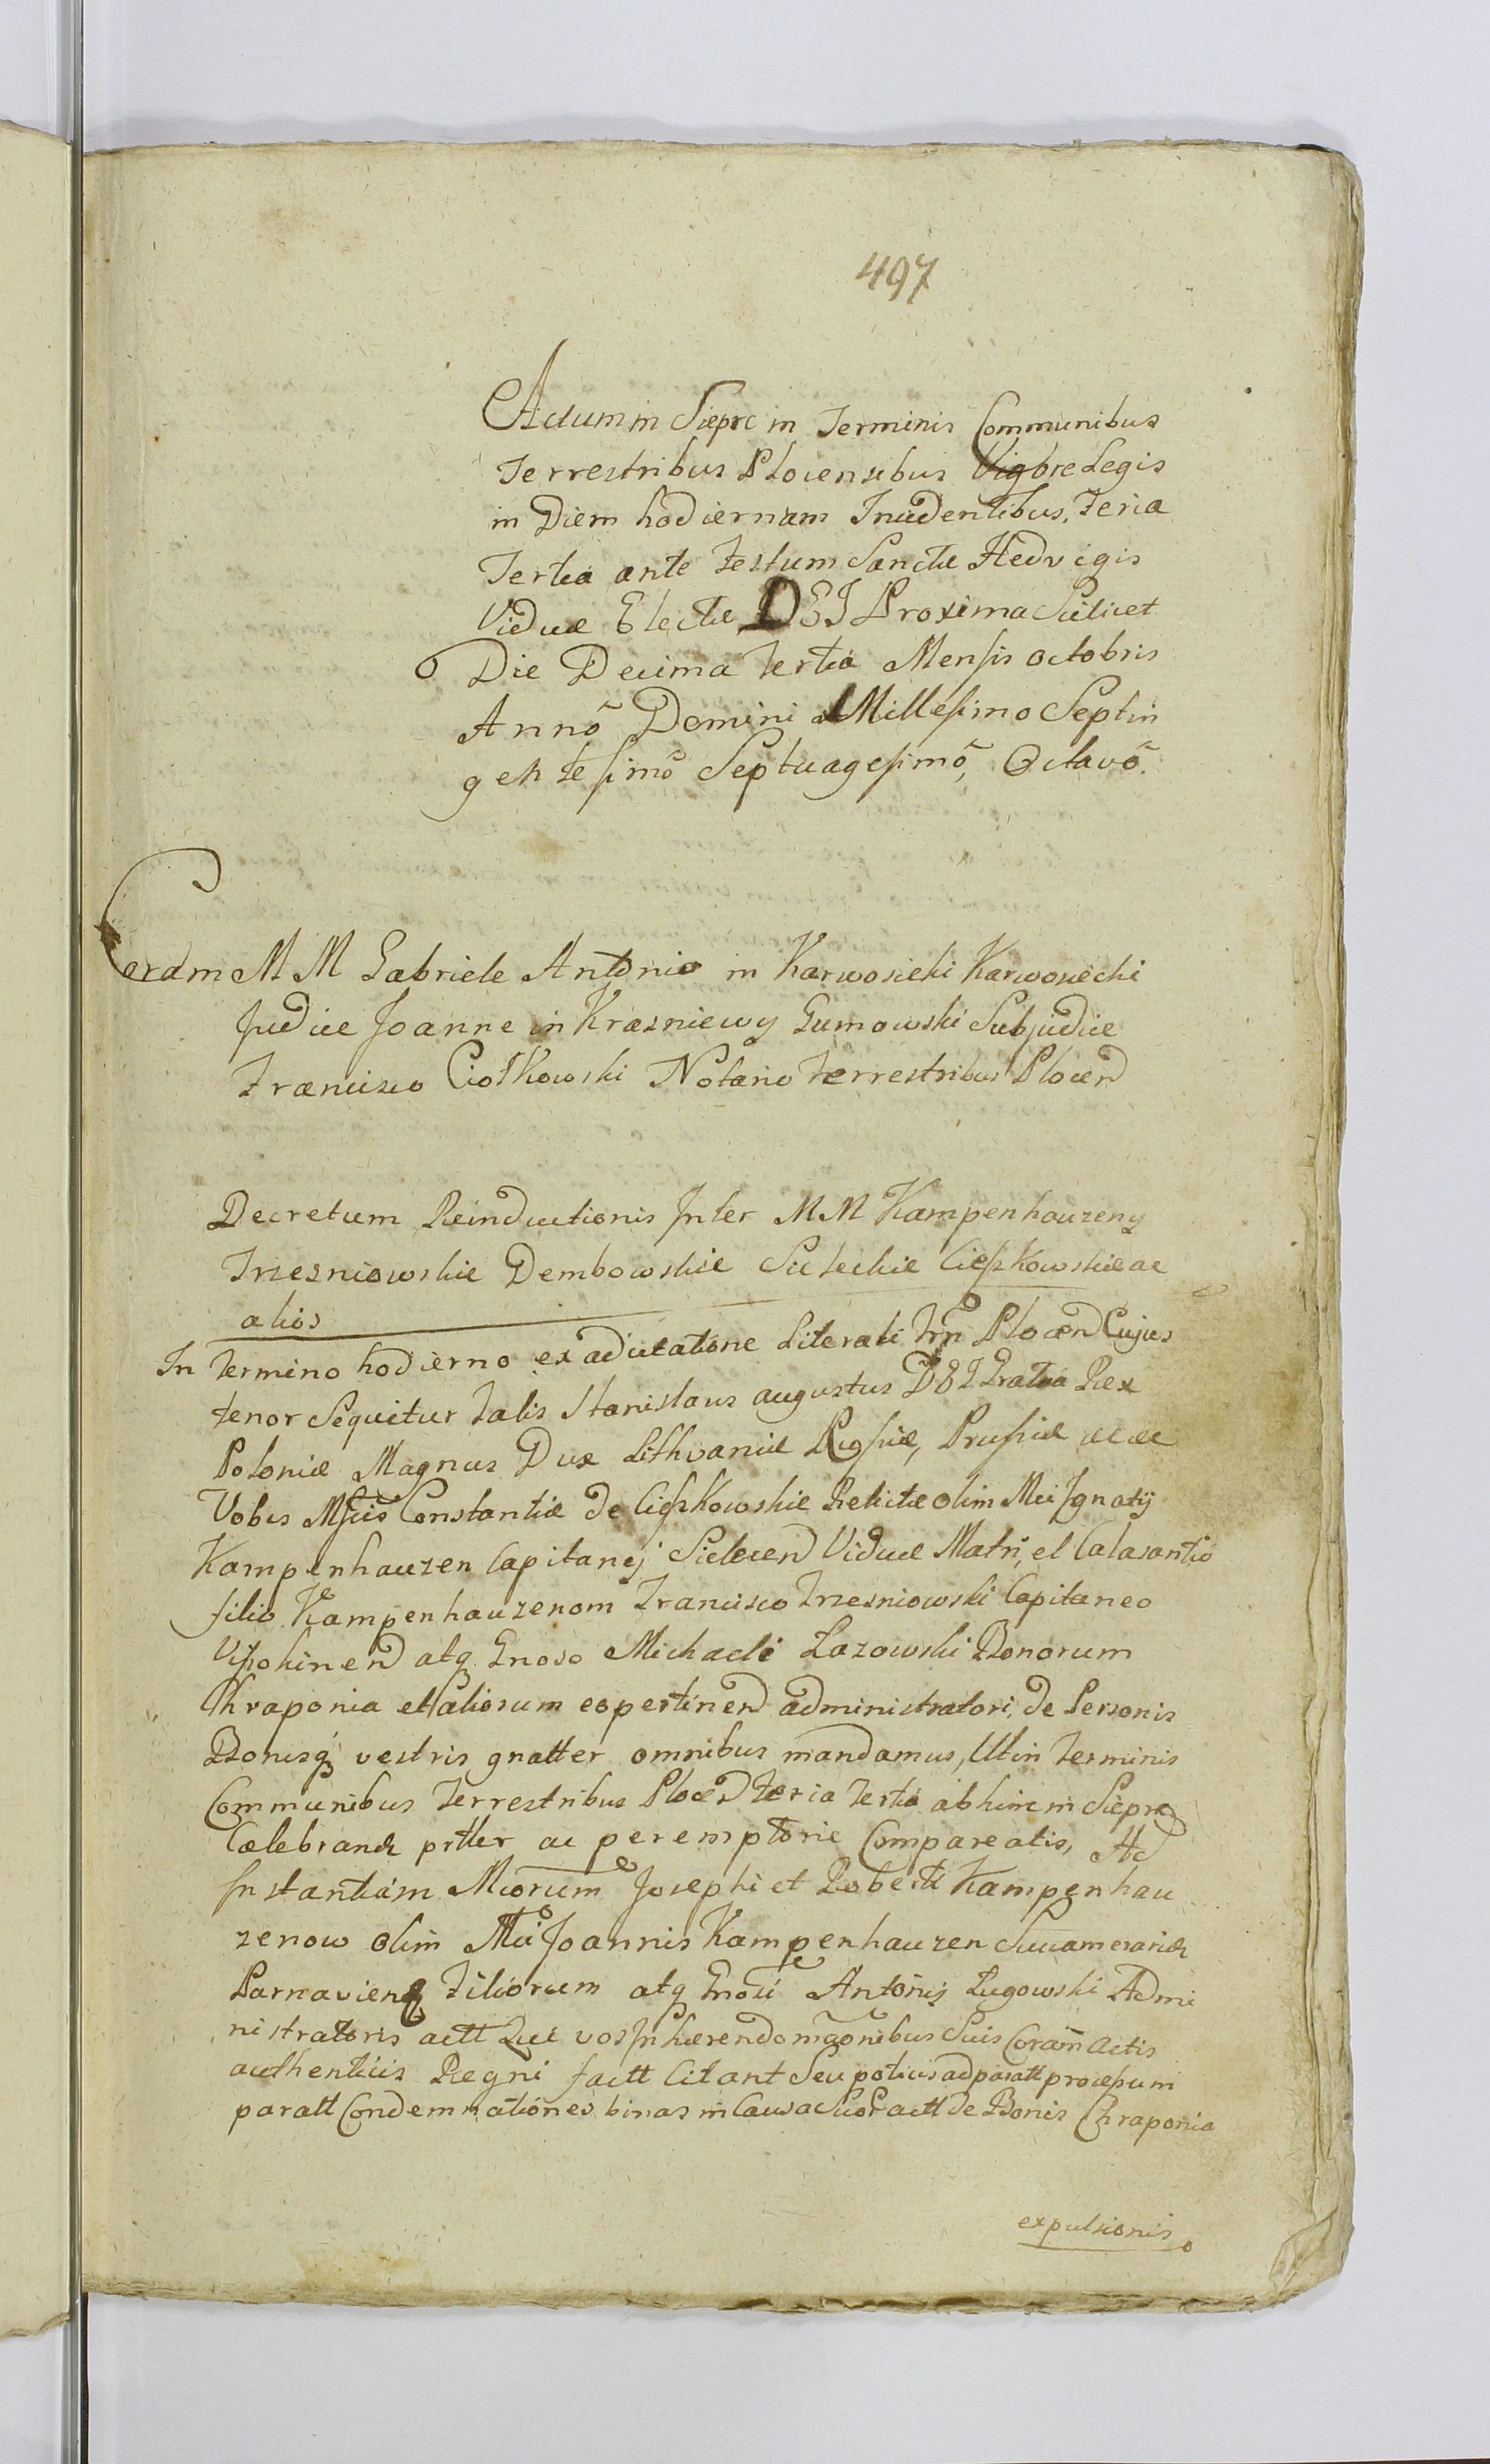 497
Actum in Sieprc in Terminis Communibus
Terrestribus Plocensibus Vigore Legis
in Diem hodiernam Incidentibus, Feria
Tertia ante Festum Sanctæ Hedvigis
Viduæ Electæ DEI Proxima Scilicet
Die Decima Tertia Mensis Octobris
Annõ Domini Millesimo Septin
gentesimõ Septuagesimõ, Octavõ.
Coram MM Gabriele Antonio in Karwosieki Karwosiecki
Judice Joanne in Krasniewy Gumowski Subjudice
Francisco Ciołkowski Notario Terrestribus Plocen
Decretum Reinductionis Inter MM Kampenhauzeny
Trzesniowskie Dembowskie Sieleckie Cieszkowskie ac
alios
In Termino hodierno ex adcitatione Literali Trri Plocen Cujus
tenor Sequitur talis Stanislaus augustus DEI Gratia Rex
Poloniæ Magnus Dux Lithvaniæ Russiæ, Prussiæ &c &c
Vobis Mficis Constantiæ de Cieszkowskie Relictæ olim Mci Ignatij
Kampenhauzen Capitanej Sielecen Viduæ Matri, et Calasantio
filio Kampenhauzenom Francisco Trzesniowski Capitaneo
atq Gnoso Michaeli Lazowski Bonorum
Chraponia et aliorum eo pertinen administratori, de Personis
Bonisq vestris gnatter omnibus mandamus, Ut in Terminis
Communibus Terrestribus Plocen Feria Tertia abhinc in Sieprc
Cælebrand prtter ac peremptorie Compareatis, Ad
Instantiam Mcorum Josephi et Roberti Kampenhau
zenow olim Mci Joannis Kampenhauzen Succamerarid
Parnavien Filiorum atq Gnosi Antonij Lugowski Admi
nistratoris actt Qui vos Inhærendo mãonibus Suis Coram actis
authenticis Regni factt Citant Seu potius ad paratt processum
paratt Condemnationes binas in Causa Suor actt de Bonis Chraponia
expulsionis